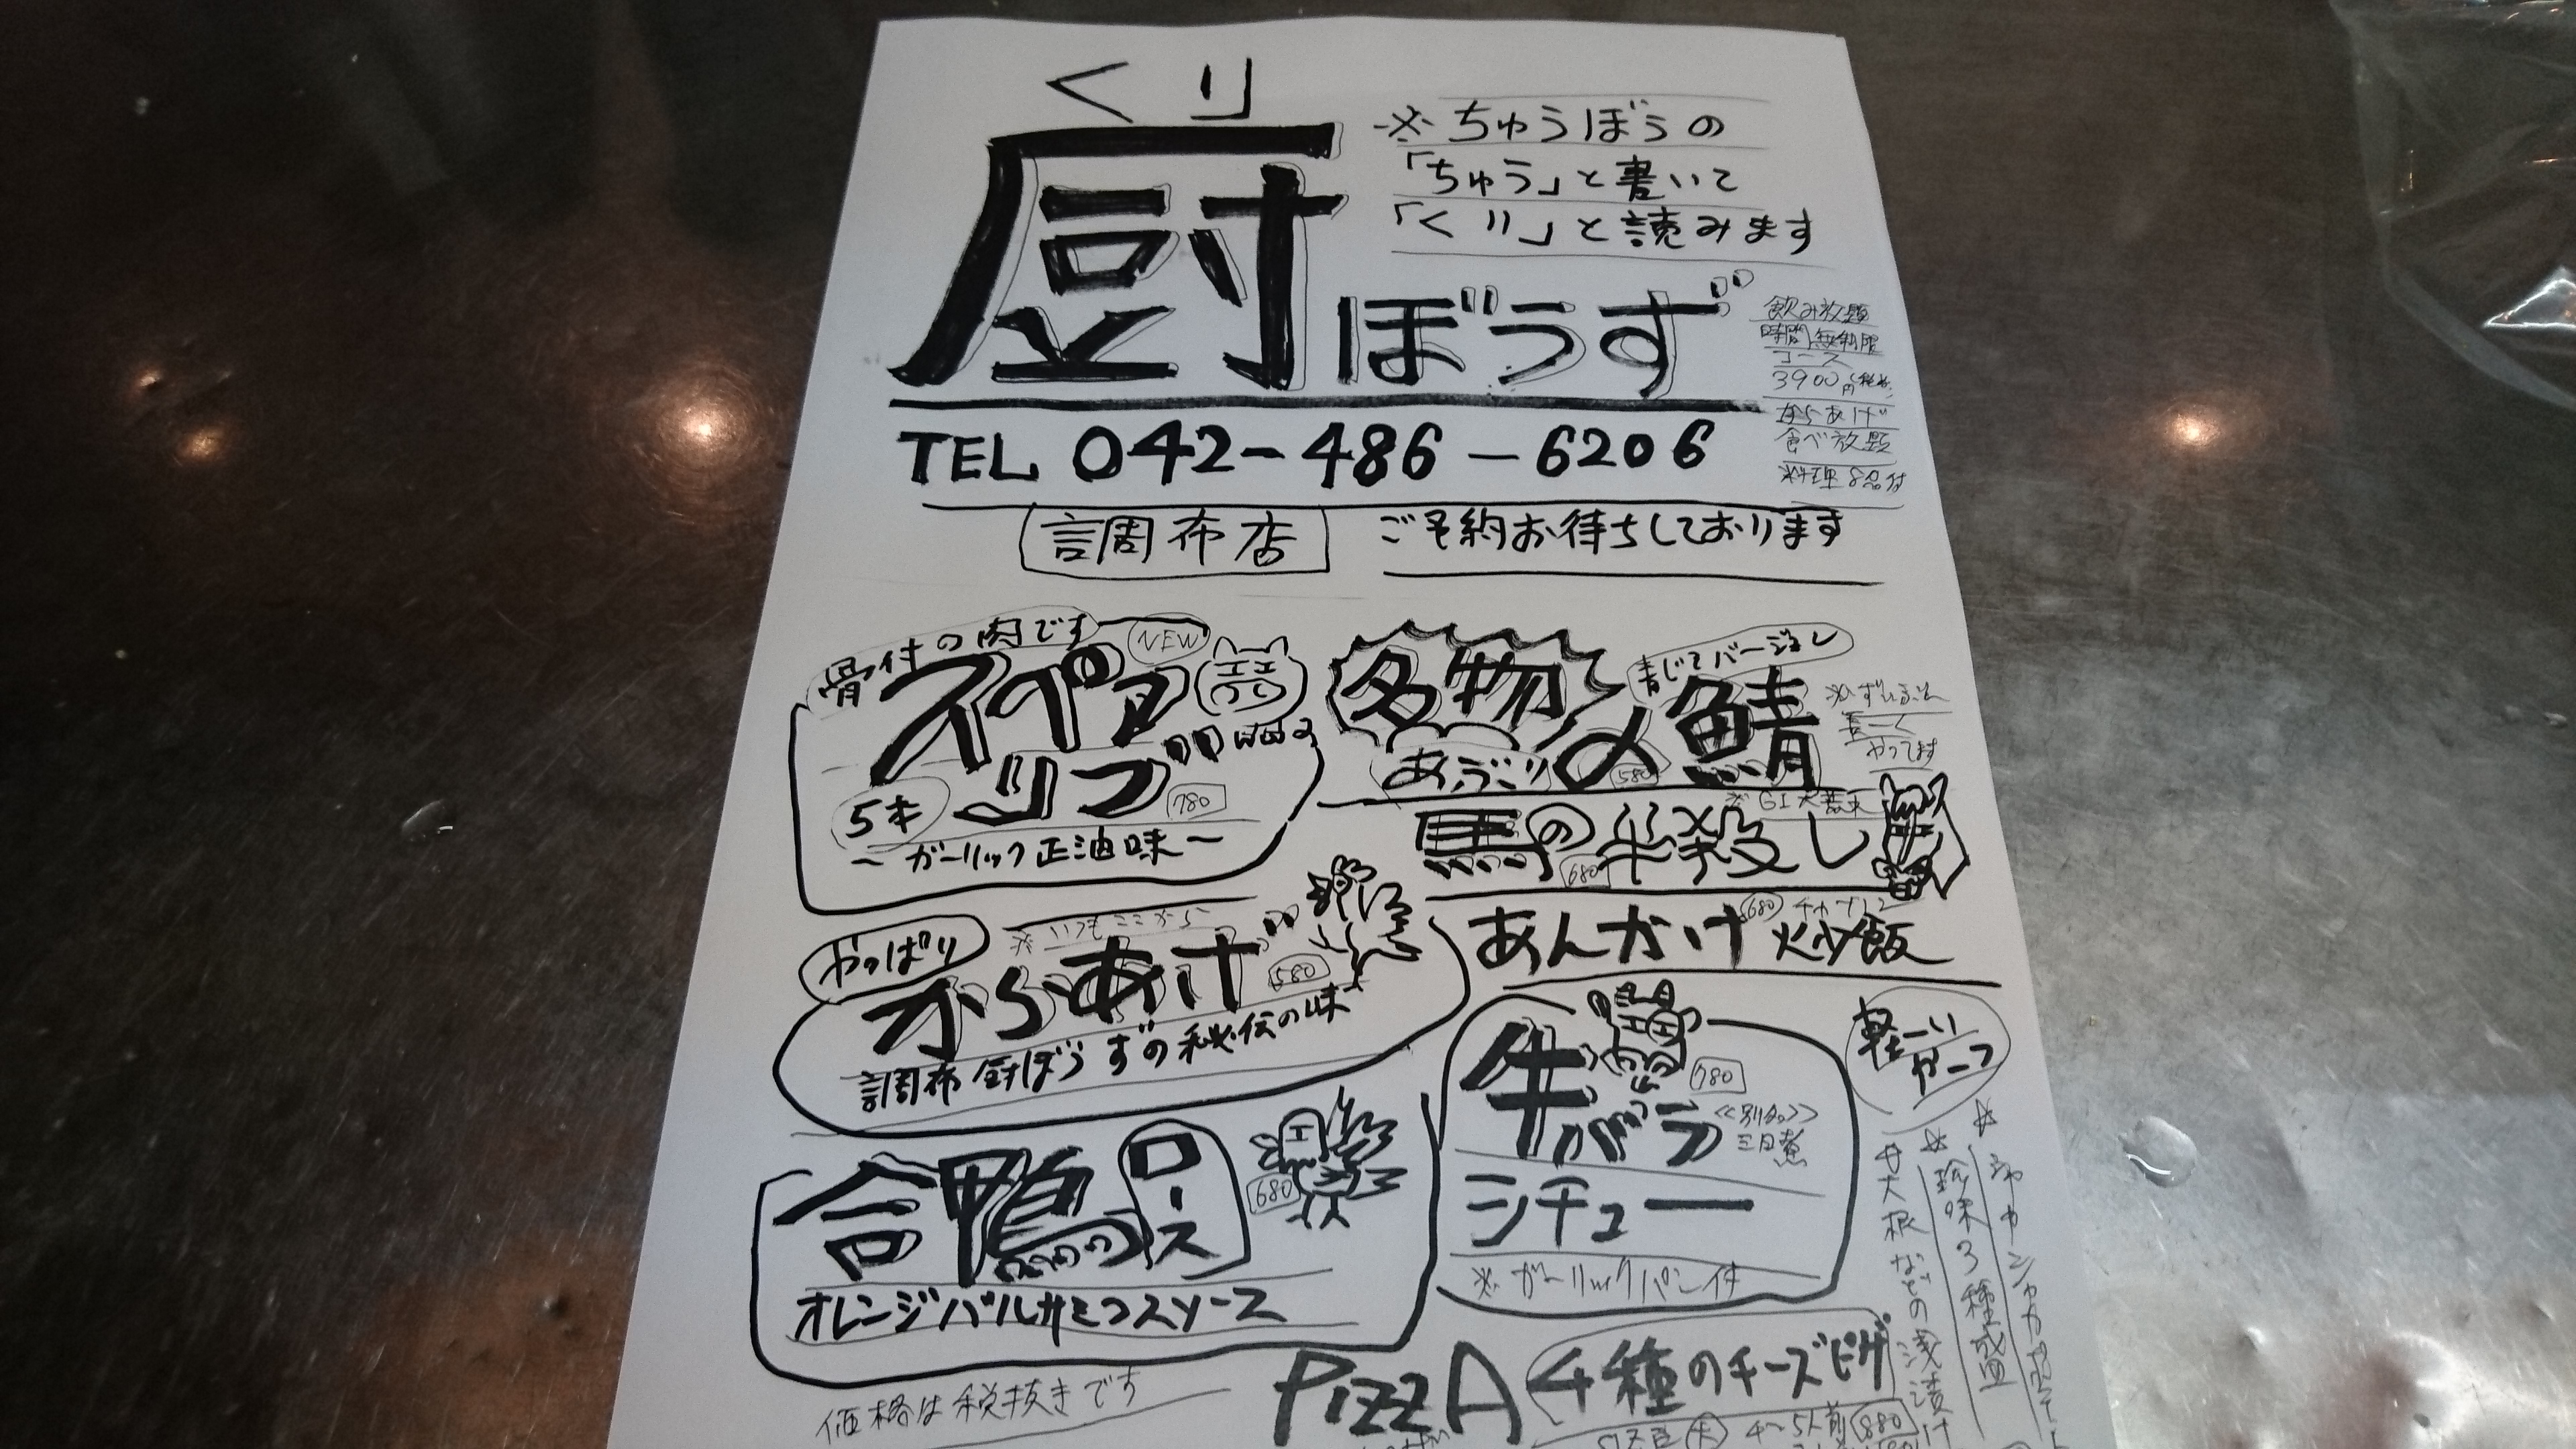 くり
厨ぼうず
※ちゅうぼうの
「ちゅう」と書いて
「くり」と読みます
飲み放題
時間無制限
コース
3900円
からあげ
食べ放題
料理8品付
TEL 042-486-6206
調布店
ご予約お待ちしております
骨付の肉です
NEW
スペア
リブ
5本
780
~ガーリック正油味~
名物
青じそバージョン
あぶり〆鯖
580
長ーく
やってます
馬の半殺し
680
あんかけ炒飯
680
やっぱり
※いつもここから
からあげ
580
調布厨ぼうずの秘伝の味
牛バラ
780
三日煮
シチュー
※ガーリックパン付
合鴨ロース
680
オレンジバルサミコスソース
軽ーい
☆珍味3種盛
大根などの浅漬け
価格は税抜きです
PIZZA
4種のチーズピザ
4~5人前
880